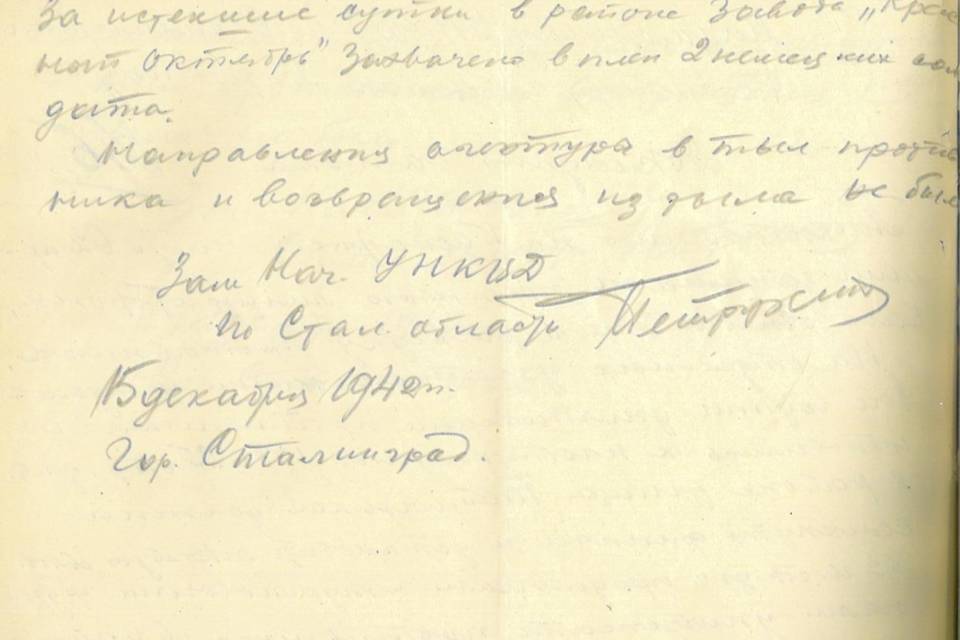 За истекшие сутки в районе завода „Крас
ный октябрь" захвачено в плен 2 немецких сол
дата.
Направления агентура в тыл против
ника и возвращения из тыла не было
Зам Нач. УНКВД
по Стал. области Петрухин
15 декабря 1942 г.
Гор. Сталинград.